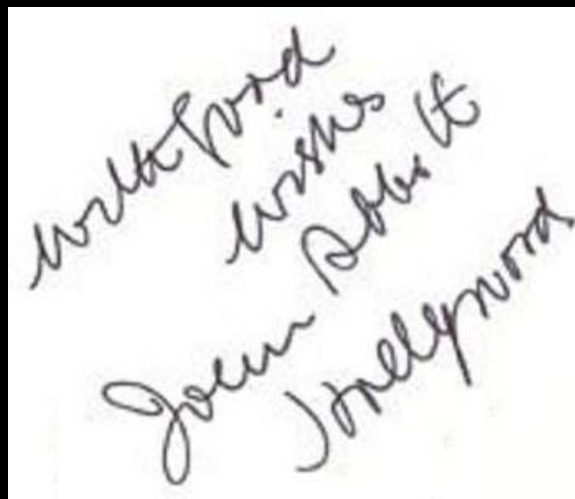 With Good
Wishes
John Abbott
Hollywood